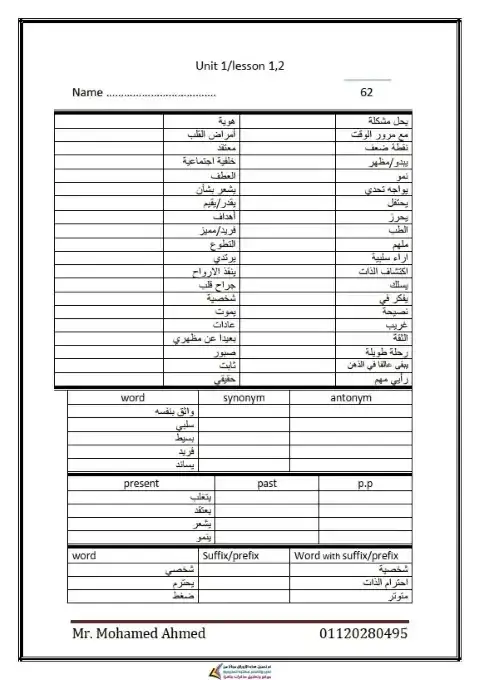 Unit 1/lesson 1,2
Name ..................................... 62
يحل مشكلة هوية
مع مرور الوقت أمراض القلب
نقطة ضعف معتقد
يبدو/مظهر خلفية اجتماعية
نمو العطف
يواجه تحدي يشعر بشأن
يحتفل يقدر/يقيم
يحرز أهداف
الطب فريد/مميز
ملهم التطوع
اراء سلبية يرتدي
اكتشاف الذات ينقذ الارواح
يسلك جراح قلب
يفكر في شخصية
نصيحة يموت
غريب عادات
الثقة بعيدا عن مظهري
رحلة طويلة صبور
يبقى عالقا في الذهن ثابت
رأيي مهم حقيقي
word synonym antonym
واثق بنفسه
سلبي
بسيط
فريد
يساند
present past p.p
يتغلب
يعتقد
يشعر
ينمو
word Suffix/prefix Word with suffix/prefix
شخصي شخصية
يحترم احترام الذات
ضغط متوتر
Mr. Mohamed Ahmed 01120280495